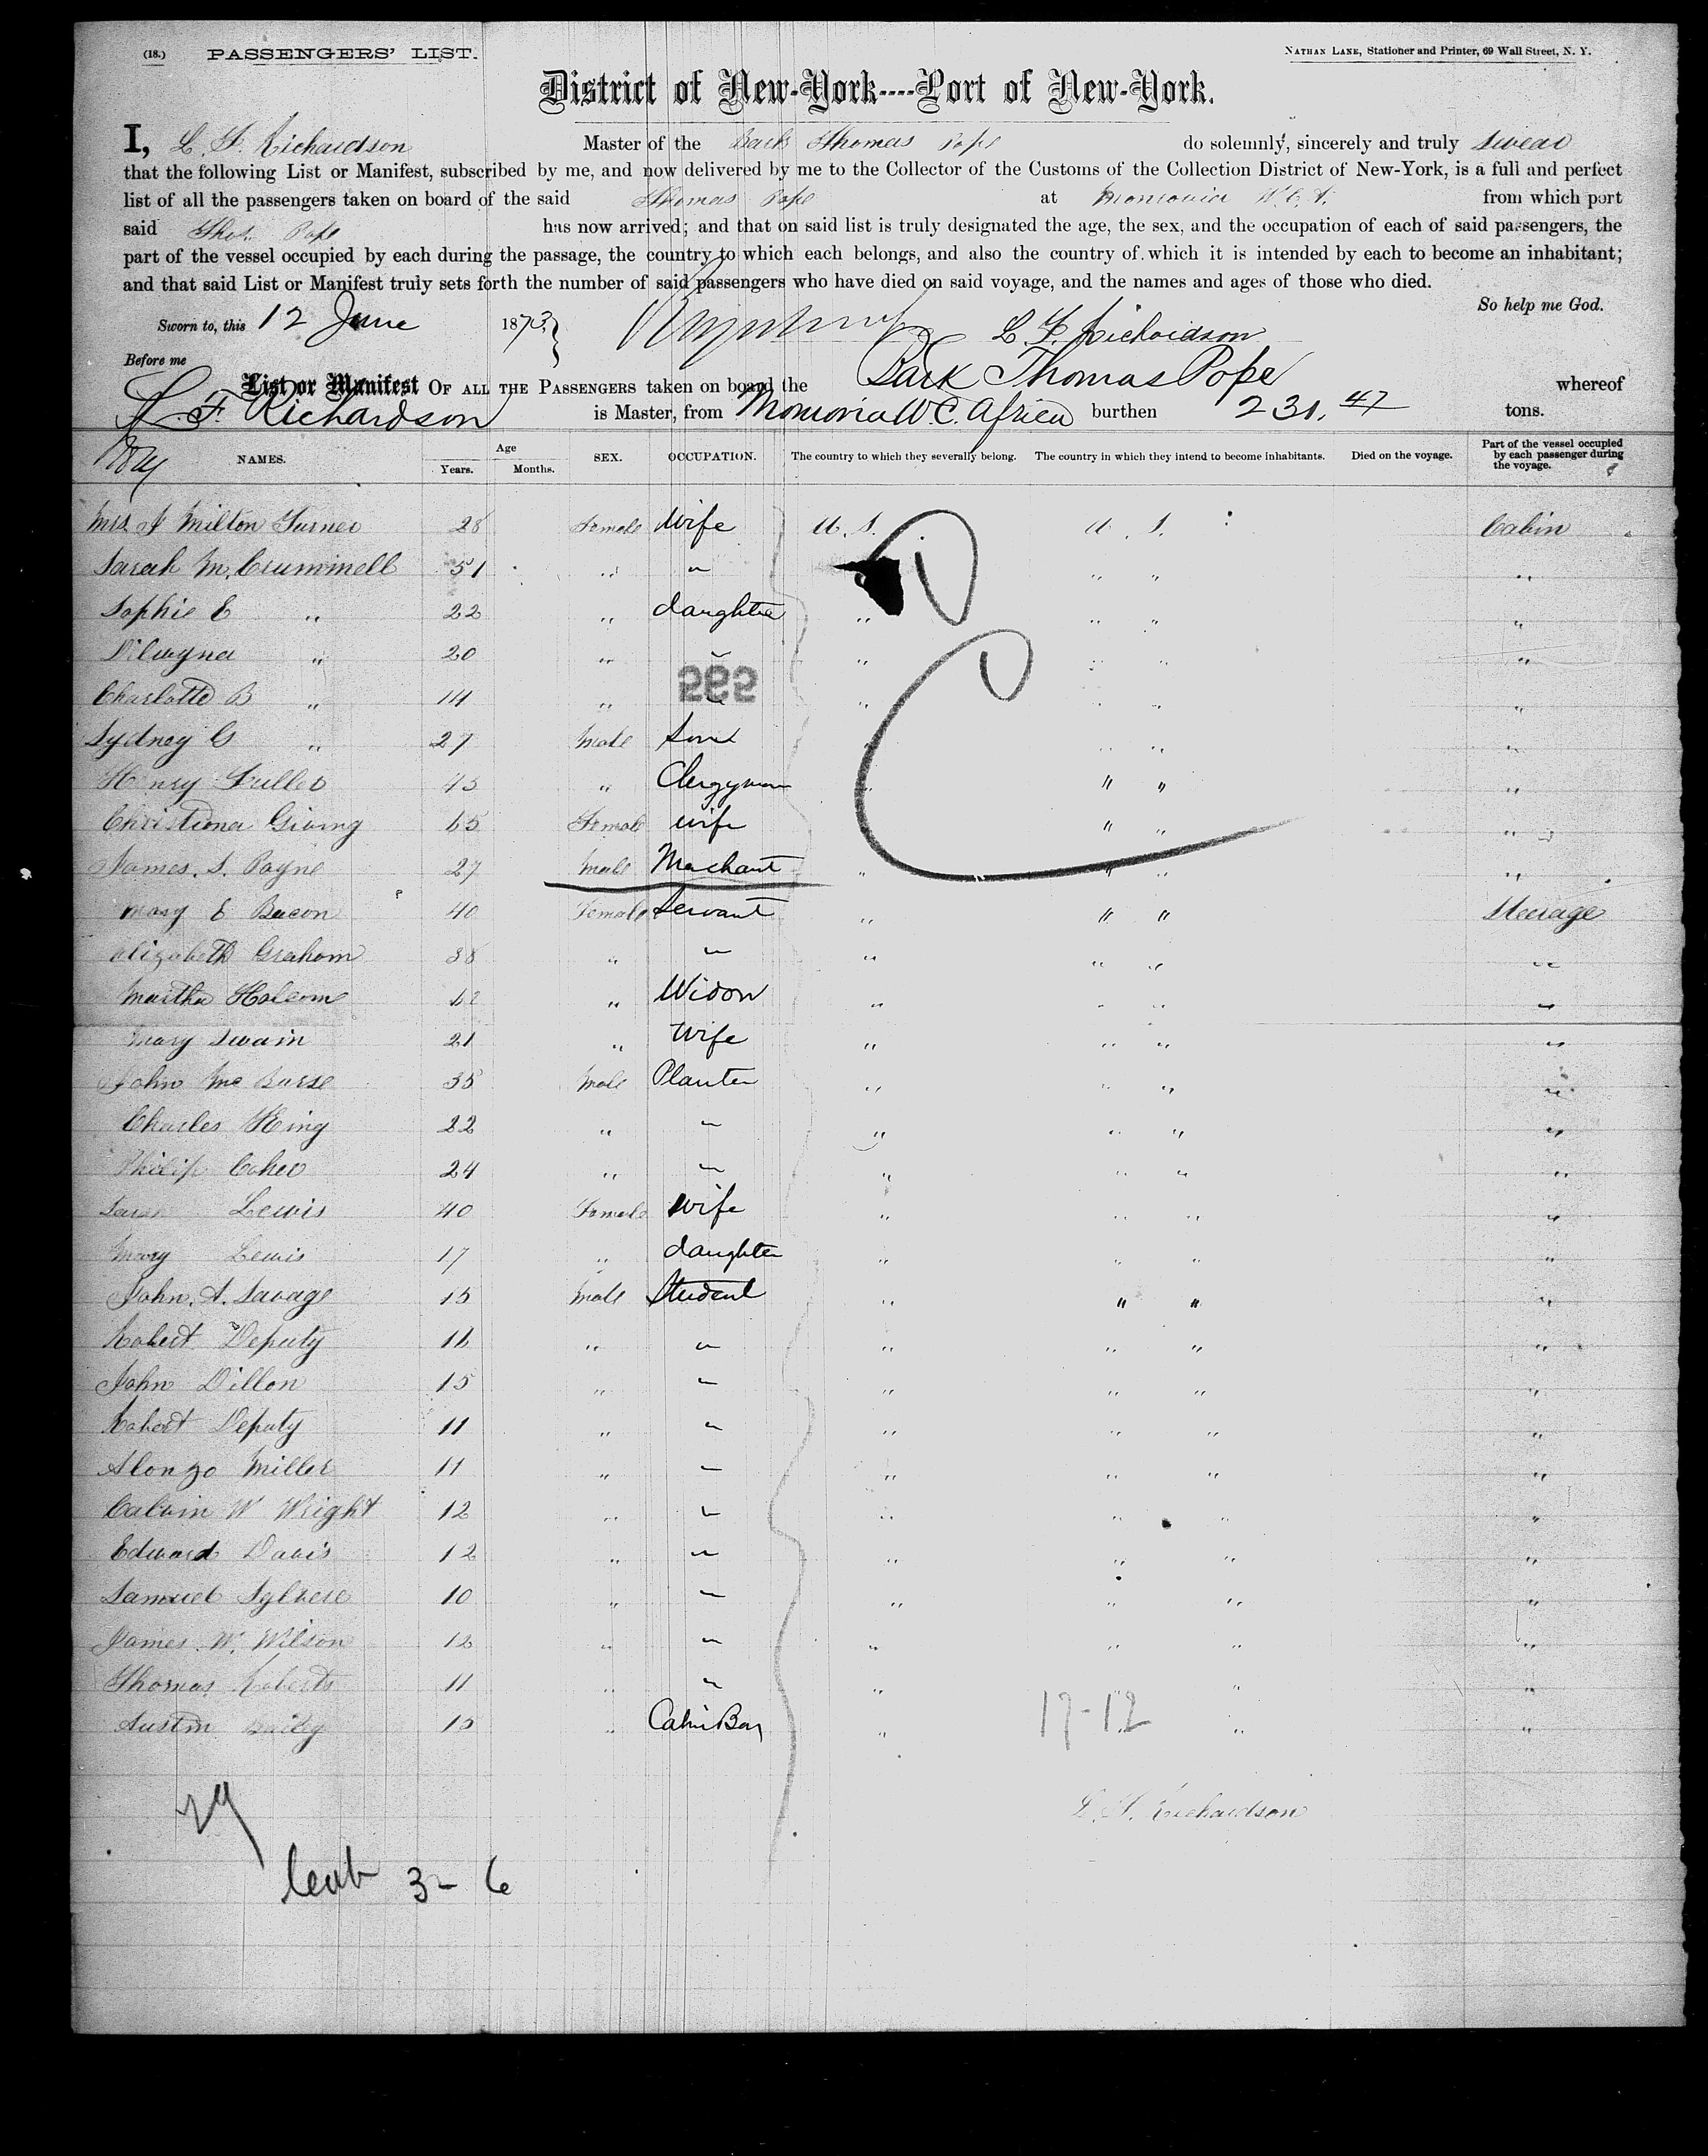 (18.) PASSENGERS' LIST.
NATHAN LANE, Stationer and Printer, 69 Wall Street, N. Y.
District of New-York----Port of New-York.
I, L. F. Richardson Master of the Bark Thomas Pope do solemnly, sincerely and truly swear
that the following List or Manifest, subscribed by me, and now delivered by me to the Collector of the Customs of the Collection District of New-York, is a full and perfect
list of all the passengers taken on board of the said Thomas Pope at Monrovia W. C. A. from which port
said Thos. Pope has now arrived; and that on said list is truly designated the age, the sex, and the occupation of each of said passengers, the
part of the vessel occupied by each during the passage, the country to which each belongs, and also the country of which it is intended by each to become an inhabitant;
and that said List or Manifest truly sets forth the number of said passengers who have died on said voyage, and the names and ages of those who died.
So help me God.
Sworn to, this 12 June 1873 L. F. Richardson
Before me
List or Manifest OF ALL THE PASSENGERS taken on board the Bark Thomas Pope whereof
L. F. Richardson is Master, from Monrovia W. C. Africa burthen 231.47 tons.
NAMES. Age Years. Months. SEX. OCCUPATION. The country to which they severally belong. The country in which they intend to become inhabitants. Died on the voyage. Part of the vessel occupied by each passenger during the voyage.
Mrs. J Milton Turner 28 Female Wife U. S. U. S. Cabin
Sarah M. Crummell 51 " " " " "
Sophie E " 22 " daughter " " " "
Dilwyna " 20 " " " " " "
Charlotte B " 14 " " " " " "
282
Sydney G " 27 Male Son " " " "
Henry Fuller 45 " Clergyman " " " "
Christiona Giving 65 Female wife " " "
James. S. Payne 27 Male Merchant " " " "
Mary E Bacon 40 Female Servant " " " Steerage
Elizabeth Grahom 38 " " " " " "
Martha Holcome 62 " Widow " " " "
Mary Swain 21 " Wife " " " "
John Mc 35 Male Planter " " " "
Charles King 22 " " " " " "
Philip Coker 24 " " " " " "
Sarah Lewis 40 Female Wife " " " "
Mary Lewis 17 " daughter " " " "
John. A. Savage 15 Male Student " " " "
Robert Deputy 16 " " " " " "
John Dillon 15 " " " " " "
Robert Deputy 11 " " " " " "
Alonzo Miller 11 " " " " " "
Calvin W Wright 12 " " " " " "
Edward Davis 12 " " " " " "
Samuel 10 " " " " " "
James. W. Wilson 12 " " " " " "
Thomas Roberts 11 " " " " "
Austin Baily 15 " Cabin Boy " " " "
17-12
L. F. Richardson
29
3- 6